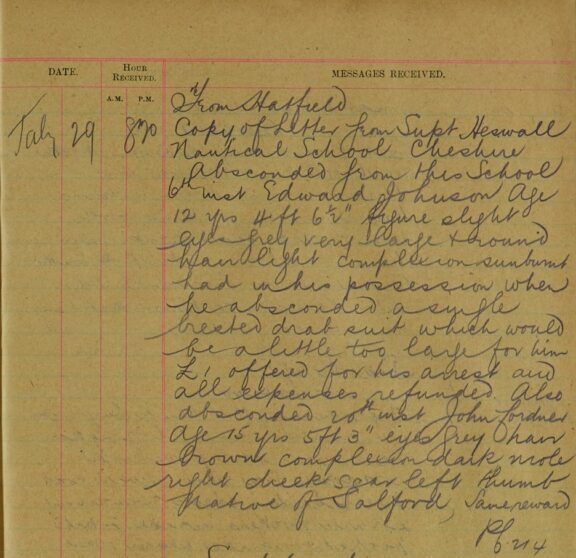 DATE.
HOUR RECEIVED.
MESSAGES RECEIVED.
A.M. P.M.
From Hatfield
July 29 8.20 Copy of Letter from Supt Heswall
Nautical School Cheshire
Absconded from this School
6th inst Edward Johnson Age
12 yrs 4 ft 6½" figure slight
eyes grey very large & round
hair light complexion sunburnt
had in his possession when
he absconded a single
brested drab suit which would
be a little too large for him
£1 offered for his arrest and
all expenses refunded Also
absconded 20th inst John Lordner
Age 15 yrs 5ft 3" eyes grey hair
brown complexion dark mole
right cheek scar left thumb
native of Salford, same reward
214